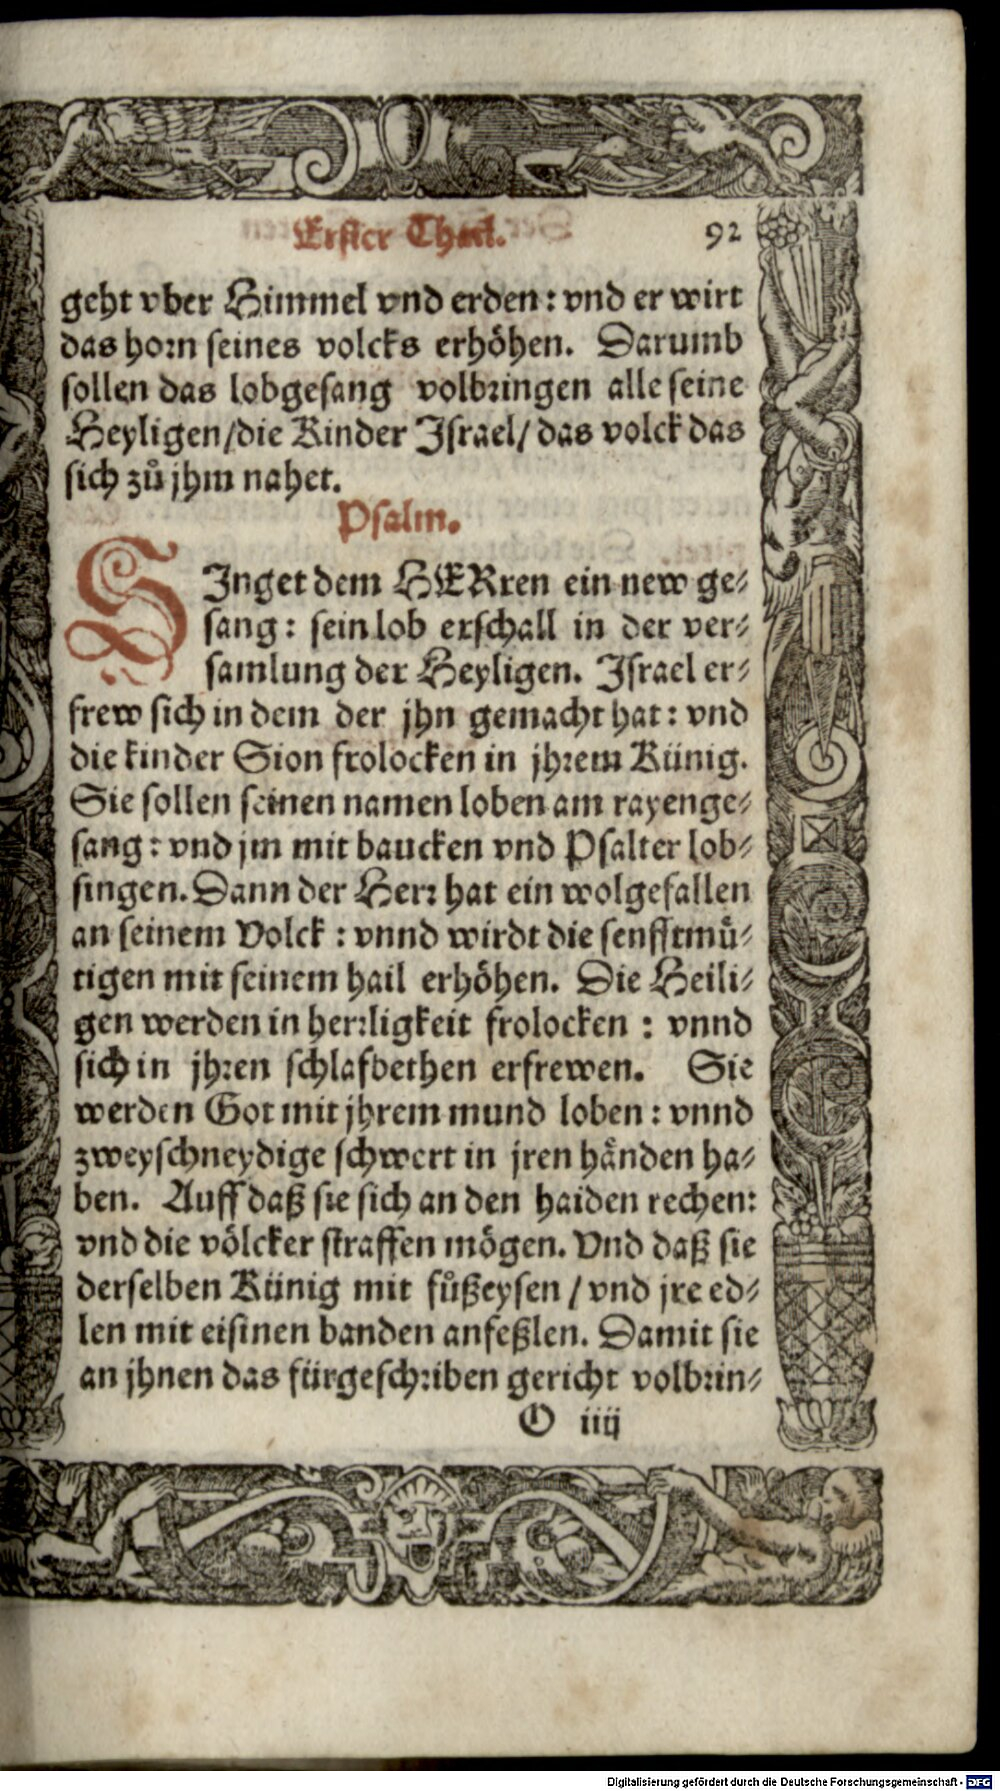 Erster Theil.
92
geht vber Himmel vnd erden: vnd er wirt
das horn seines volcks erhöhen. Darumb
sollen das lobgesang volbringen alle seine
Heyligen/die Kinder Israel/ das volck das
sich zů jhm nahet.
Psalm.
SInget dem HERren ein new ge⸗
sang: sein lob erschall in der ver⸗
samlung der Heyligen. Israel er⸗
frew sich in dem der jhn gemacht hat: vnd
die kinder Sion frolocken in jhrem Künig.
Sie sollen seinen namen loben am rayenge⸗
sang: vnd jm mit baucken vnd Psalter lob⸗
singen. Dann der Herr hat ein wolgefallen
an seinem Volck: vnnd wirdt die senfftmů⸗
tigen mit seinem hail erhöhen. Die Heili⸗
gen werden in herrligkeit frolocken: vnnd
sich in jhren schlafbethen erfrewen. Sie
werden Got mit jhrem mund loben: vnnd
zweyschneydige schwert in jren händen ha⸗
ben. Auff daß sie sich an den haiden rechen:
vnd die völcker straffen mögen. Vnd daß sie
derselben Künig mit fůßeysen / vnd jre ed⸗
len mit eisinen banden anfeßlen. Damit sie
an jhnen das fürgeschriben gericht volbrin⸗
O iiij
Digitalisierung gefördert durch die Deutsche Forschungsgemeinschaft - DFG